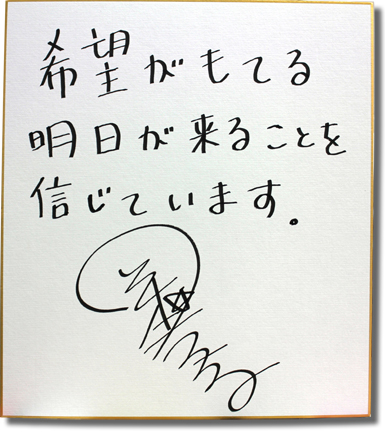 希望がもてる
明日が来ることを
信じています。